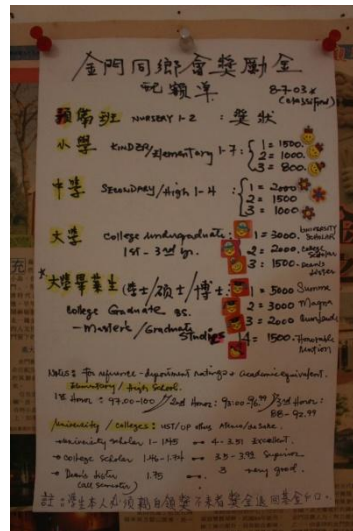 金門同鄉會獎勵金
8-7-03
(classified)
預備班 NURSERY 1-2 : 獎狀
小學 KINDER/Elementary 1-7 : 1 = 1500.
2 = 1000.
3 = 800.
中學 SECONDARY/High 1-4 : 1 = 2000
2 = 1500
3 = 1000
大學 College undergraduate : 1 = 3000. UNIVERSITY SCHOLAR
1st - 3rd yr. 2 = 2000. College Scholar
3 = 1500. Dean's Lister
大學畢業生 (學士/碩士/博士) 1 = 5000 Summa
College Graduate 2 = 3000 Magna
- Masters/Graduate Studies 3 = 2000 Cumlaude
4 = 1500. Honorable Mention
Notes: for reference - department ratings & academic equivalent.
Elementary/High School.
1st Honor: 97.00-100 / 2nd Honor: 93.00-96.99 / 3rd Honor: 88-92.99
University/Colleges: UST/UP
University scholar 1-1.45 4-3.51 Excellent.
College Scholar 1.46-1.74 3.5- Superior
Dean's Lister 1.75 3 very good.
(all semester)
註: 學生本人必須親自領獎